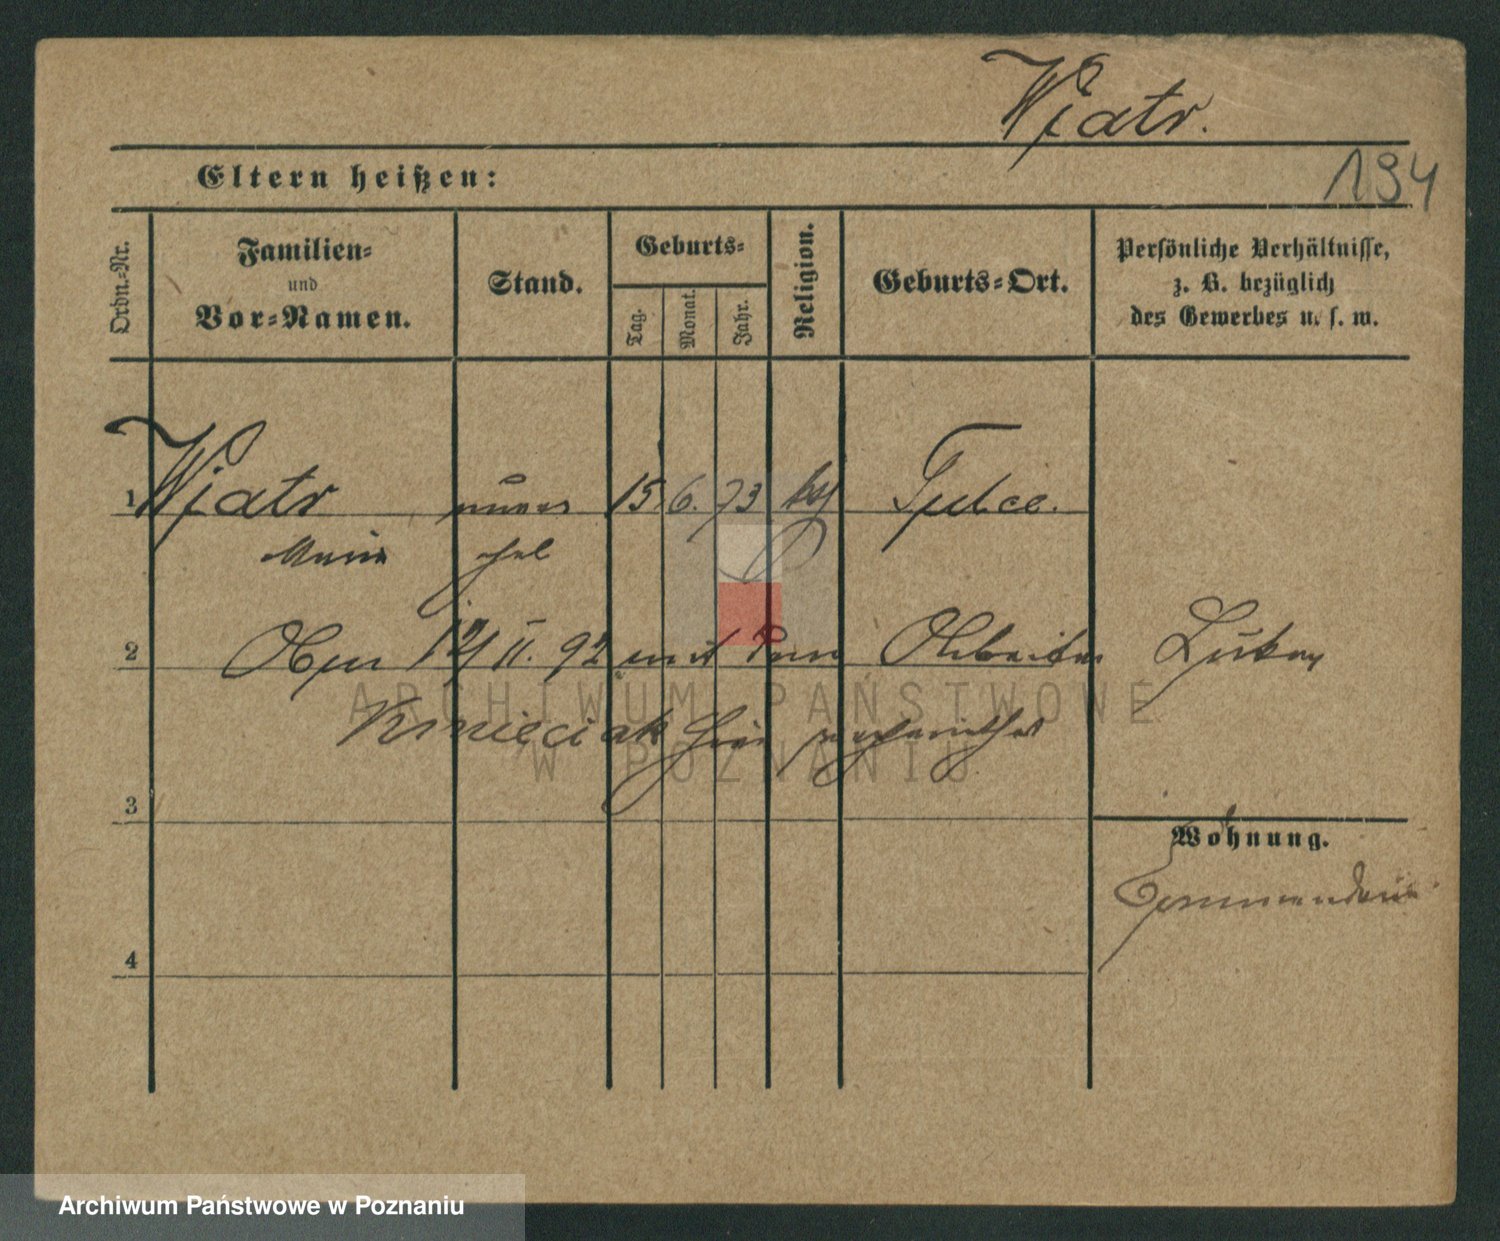 Wjatr.
194
Eltern heißen:
Ordn.-Nr.
Familien-
und
Vor-Namen.
Stand.
Geburts-
Tag.
Monat.
Jahr.
Religion.
Geburts-Ort.
Persönliche Verhältnisse,
z. B. bezüglich
des Gewerbes u. s. w.
1 Wjatr 15. 6. 73 Tulce.
Marie
2 12/II. 92 mit dem Arbeiter
Kmieciak hier verheirathet
3
Wohnung.
Commenderie
4
ARCHIWUM PAŃSTWOWE
W POZNANIU
Archiwum Państwowe w Poznaniu